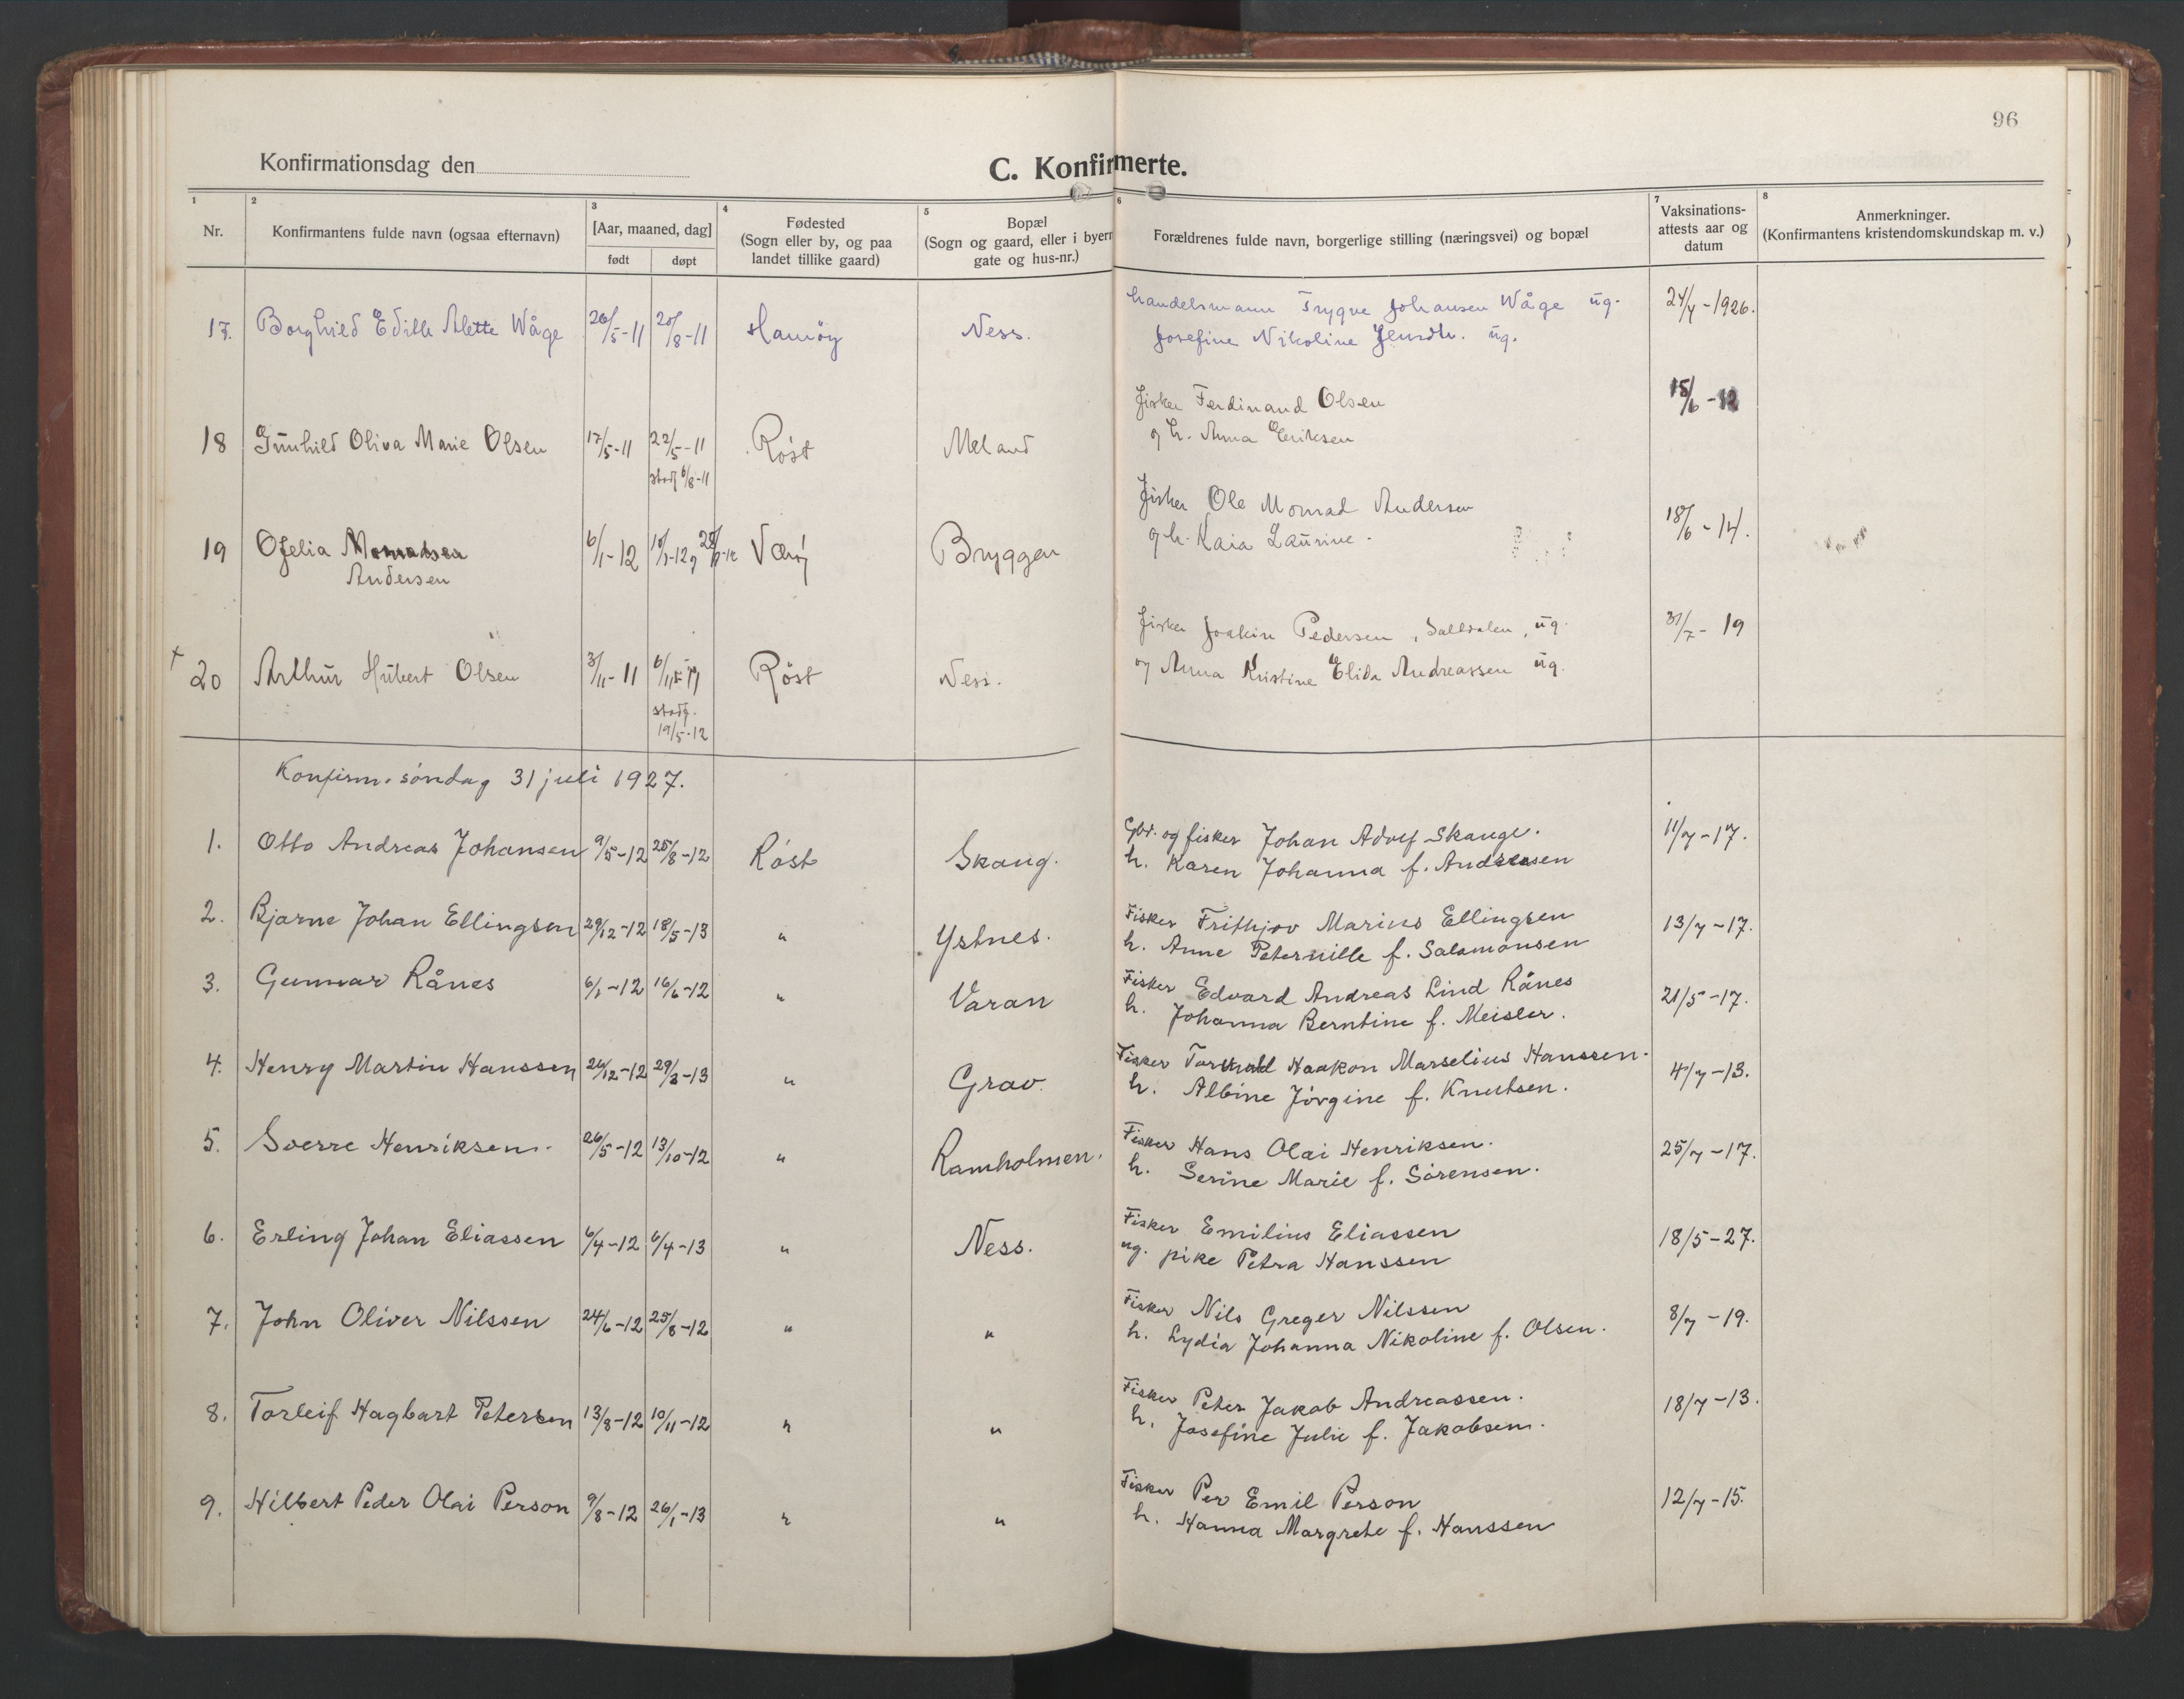 96
Konfirmationsdag den
C. Konfirmerte.
1 2 3 4 5 6 7 8
Nr.
Konfirmantens fulde navn (ogsaa efternavn)
[Aar, maaned, dag]
født døpt
Fødested
(Sogn eller by, og paa
landet tillike gaard)
Bopæl
(Sogn og gaard, eller i byern
gate og hus-nr.)
Forældrenes fulde navn, borgerlige stilling (næringsvei) og bopæl
Vaksinations-
attests aar og
datum
Anmerkninger.
(Konfirmantens kristendomskundskap m. v.)
17. Borghild Edille Alette Wåge 26/5-11 20/8-11 Hamøy Ness. handelsmann Trygve Johansen Wåge ug. 24/4-1926.
Josefine Nikoline ug.
18 Gunhild Oliva Marie Olsen 17/5-11 22/5-11 Röst Meland fisker Ferdinand Olsen 15/6-12
stadf 6/8-11
og h. Anna Eeriksen
19 Ofelia Monradsen 6/1-12 Værøy Bryggen fisker Ole Monrad Andersen 18/6-14.
Andersen
og h. Kaia Laurine.
† 20 Arthur Hubert Olsen 3/11-11 Röst Ness. fisker Joakin Pedersen, Saltdalen, ug. 31/7-19
stadf.
19/5-12
og Anna Kristine Elida Andreassen ug.
Konfirm. söndag 31 juli 1927.
1. Otto Andreas Johansen 9/5-12 25/8-12 Röst Skaug. Gbr. og fisker Johan Adolf Skauge. 11/7-17.
h. Karen Johanna f. Andreasen
2. Bjarne Johan Ellingsen 29/12-12 18/5-13 " Ystnes. Fisker Frithjov Marius Ellingsen 13/7-17.
h. Anne Peternille f. Salamonsen
3. Gunnar Rånes 6/1-12 16/6-12 " Varan Fisker Edvard Andreas Lind Rånes 21/5-17.
h. Johanna Berntine f. Meisler.
4. Henry Martin Hanssen 26/12-12 29/3-13 " Grav. Fisker Torvald Haakon Marselius Hanssen. 4/7-13.
h. Albine Jörgine f. Knutsen.
5. Sverre Henriksen. 26/5-12 13/10-12 " Ramholmen. Fisker Hans Olai Henriksen. 25/7-17.
h. Serine Marie f. Sörensen.
6. Erling Johan Eliassen 6/4-12 6/4-13 " Ness. Fisker Emilius Eliassen 18/5-27.
ug. pike Petra Hanssen
7. John Oliver Nilssen 24/6-12 25/8-12 " " Fisker Nils Greger Nilssen 8/7-19.
h. Lydia Johanna Nikoline f. Olsen.
8. Torleif Hagbart Petersen 13/8-12 10/11-12 " " Fisker Peter Jakob Andreassen. 18/7-13.
h. Josefine Julie f. Jakobsen.
9. Hilbert Peder Olai Person 9/8-12 26/1-13 " " Fisker Per Emil Person 12/7-15.
h. Hanna Margrete f. Hanssen